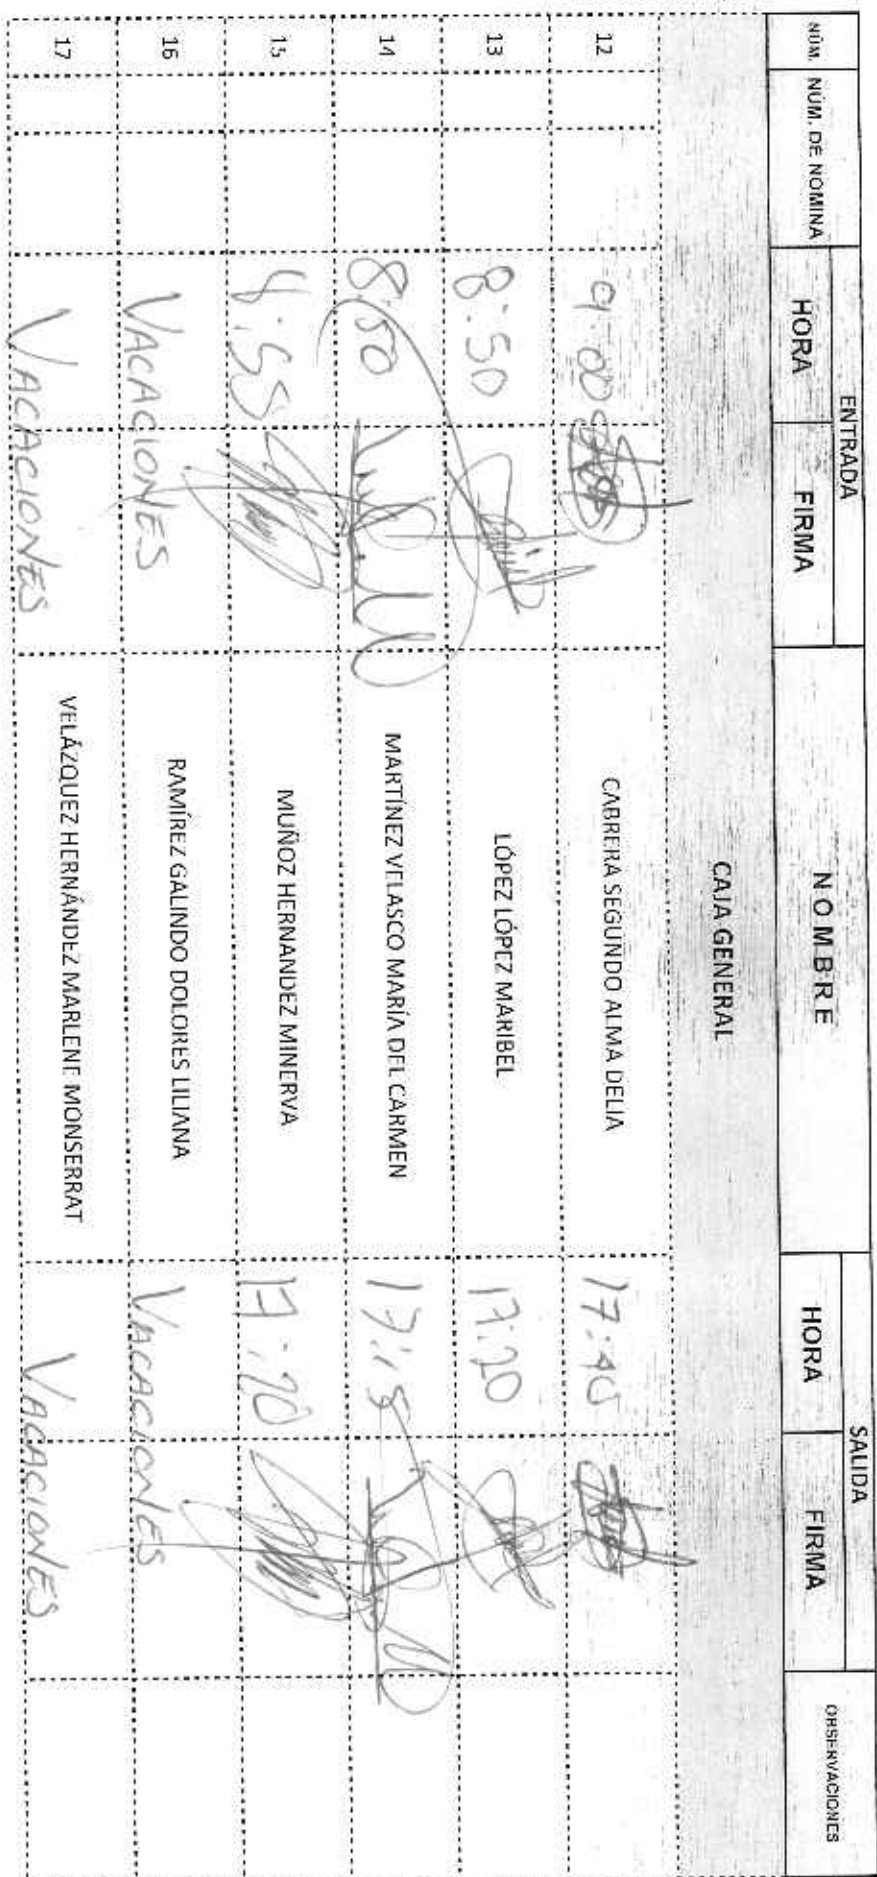 NÚM. NÚM. DE NOMINA ENTRADA NOMBRE SALIDA OBSERVACIONES
HORA FIRMA HORA FIRMA
CAJA GENERAL
12 9:00 CABRERA SEGUNDO ALMA DELIA 17:40
13 8:50 LÓPEZ LÓPEZ MARIBEL 17:20
14 8:50 MARTÍNEZ VELASCO MARÍA DEL CARMEN 17:15
15 MUÑOZ HERNANDEZ MINERVA 17:20
16 VACACIONES RAMÍREZ GALINDO DOLORES LILIANA VACACIONES
17 VACACIONES VELÁZQUEZ HERNÁNDEZ MARLENE MONSERRAT VACACIONES